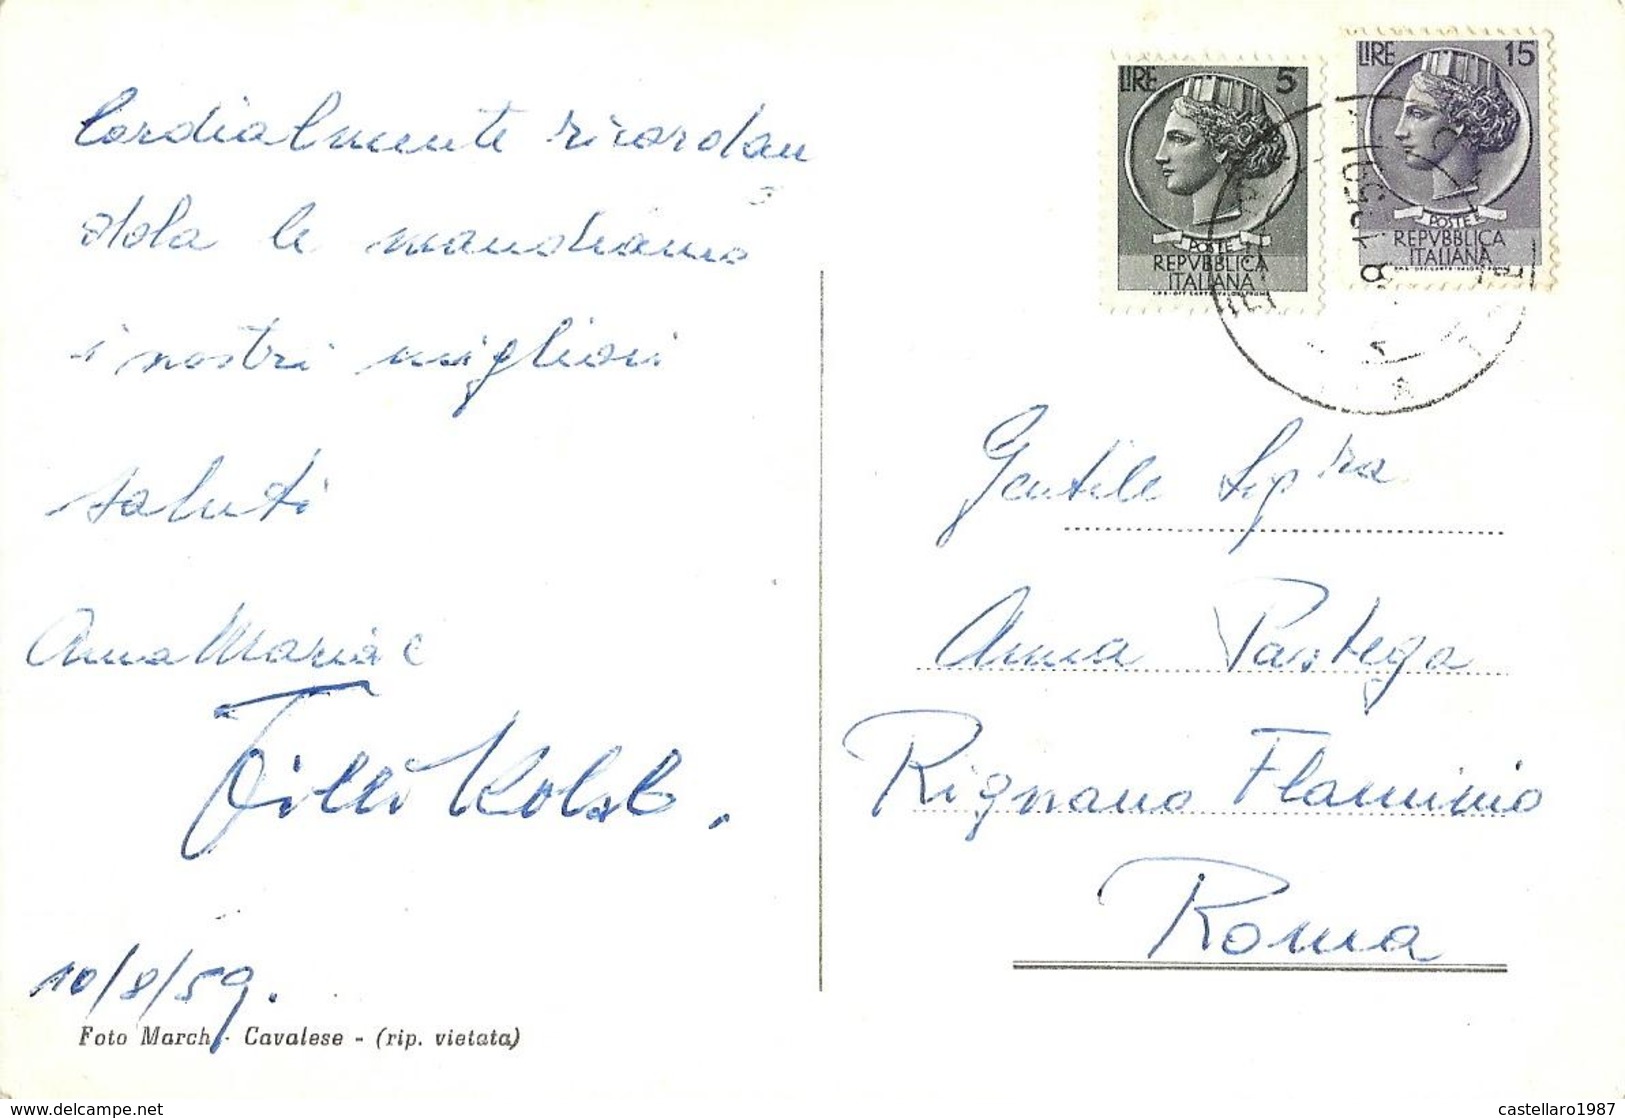 Cordialmente ricordan
dola le mandiamo
i nostri migliori
saluti
Anna Maria e
Kolb.
10/8/59.
Foto March - Cavalese - (rip. vietata)
LIRE 5
POSTE
REPVBBLICA
ITALIANA
LIRE 15
POSTE
REPVBBLICA
ITALIANA
Gentile Sig.ra
Anna Pastega
Rignano Flaminio
Roma
www.delcampe.net
castellaro1987